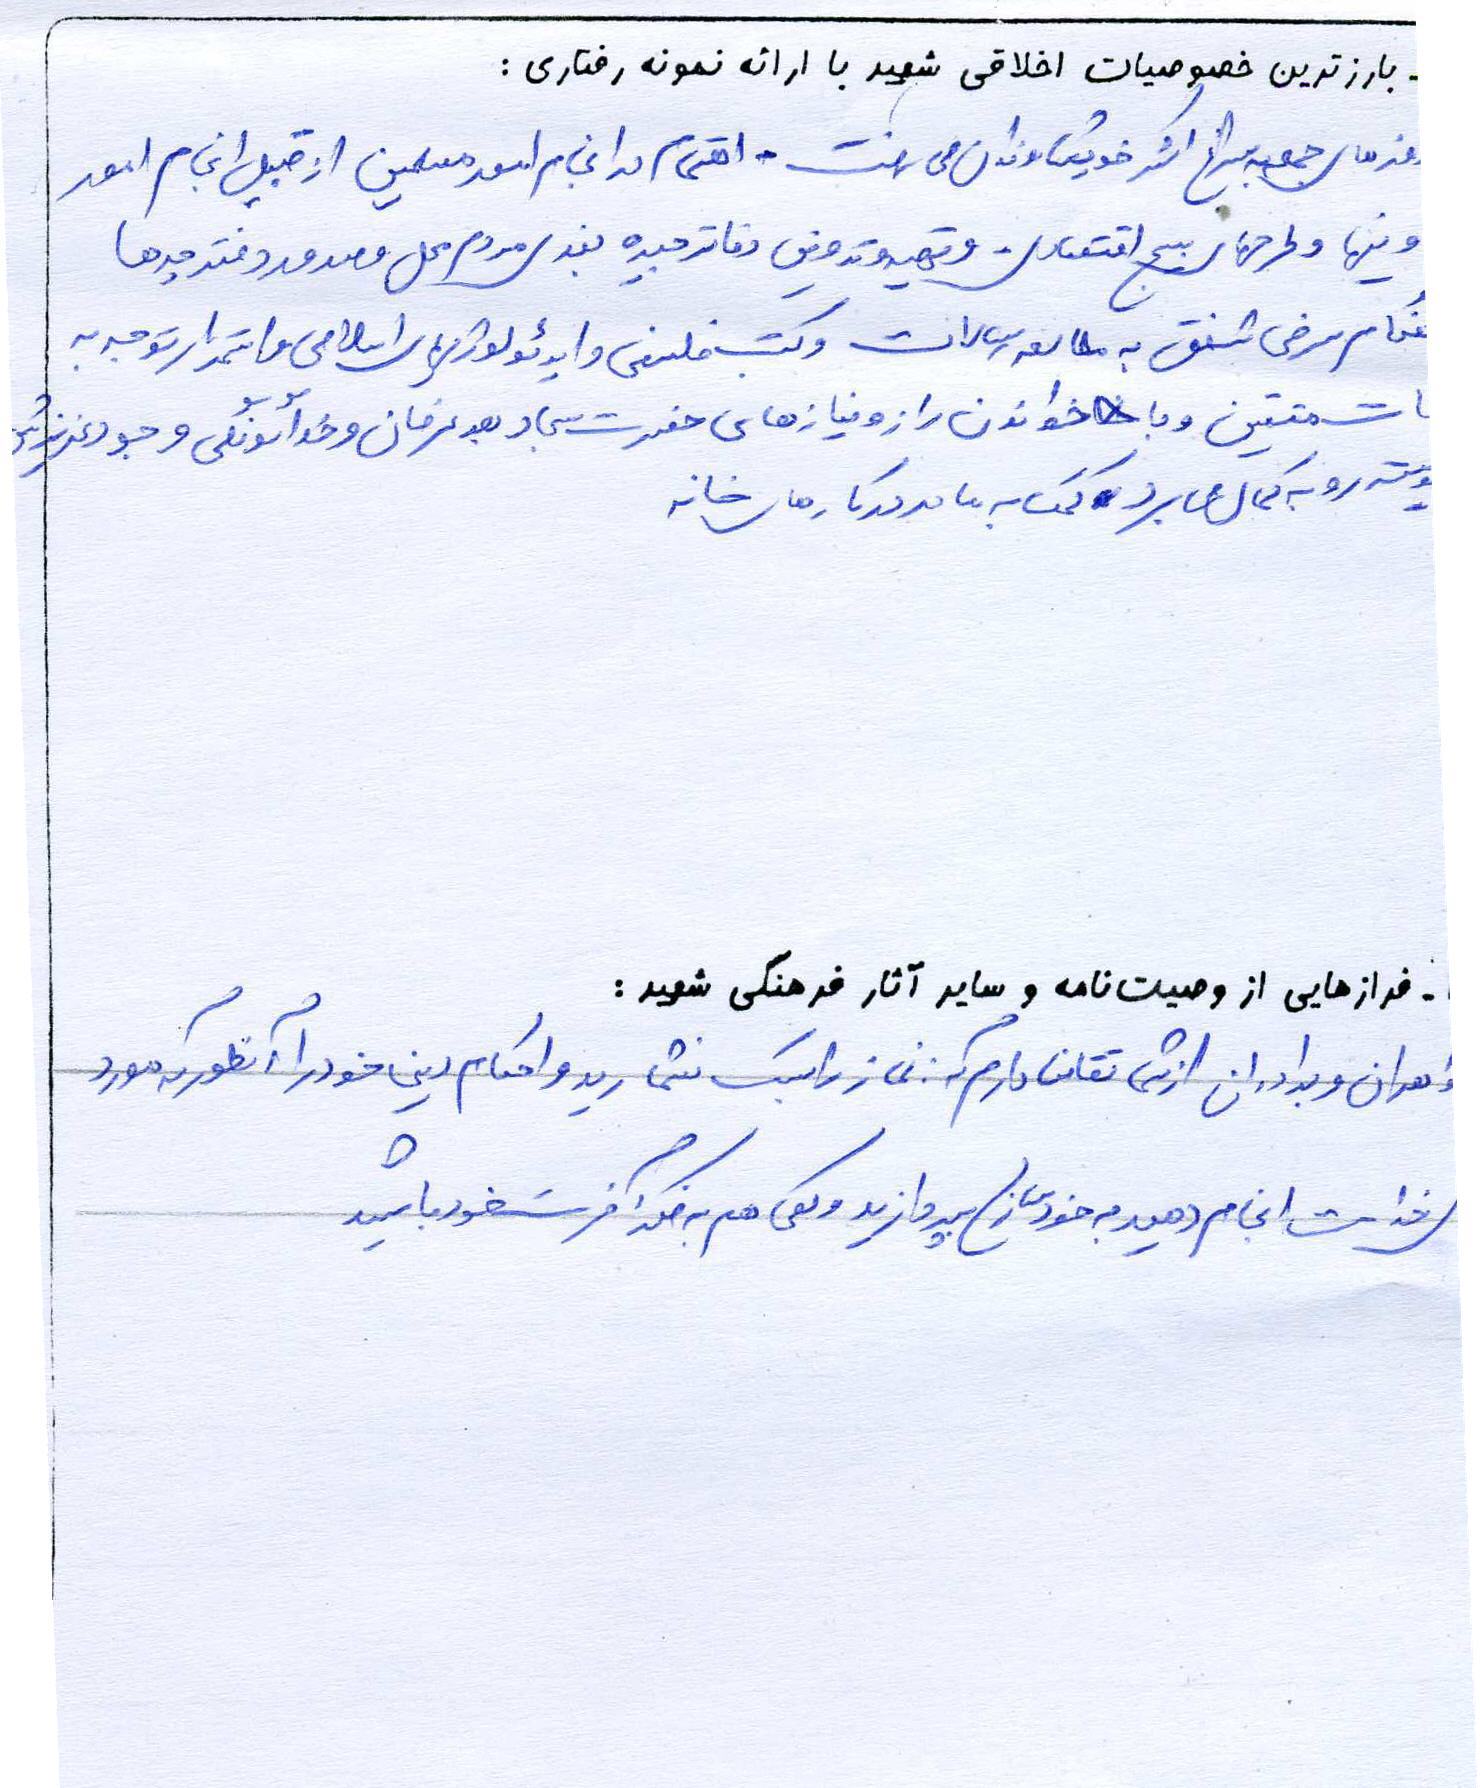 - بارزترین خصوصیات اخلاقی شهید با ارائه نمونه رفتاری :
جمعه بسراغ اکثر خویشاوندان می رفت - اهتمام در انجام امور مسلمین از قبیل انجام امور
و طرحهای بسیج اقتصادی و تهیه و تدوین دفاتر جیره بندی مردم محل و صدور دفترچه ها
مرخصی به مطالعه رسالات و کتب فلسفی و ایدئولوژیهای اسلامی و استمرار توجه به
متقین و با خواندن راز و نیازهای حضرت سجاد به عرفان و خداگونگی وجود عزیزش
رو به کمال می برد کمک به مادر در کارهای خانه
- فرازهایی از وصیت‌نامه و سایر آثار فرهنگی شهید :
و برادران از شما تقاضا دارم که : نماز را سبک نشمارید و احکام دینی خود را آنطور که مورد
خداست انجام دهید به خودسازی بپردازید و کمی هم به فکر آخرت خود باشید